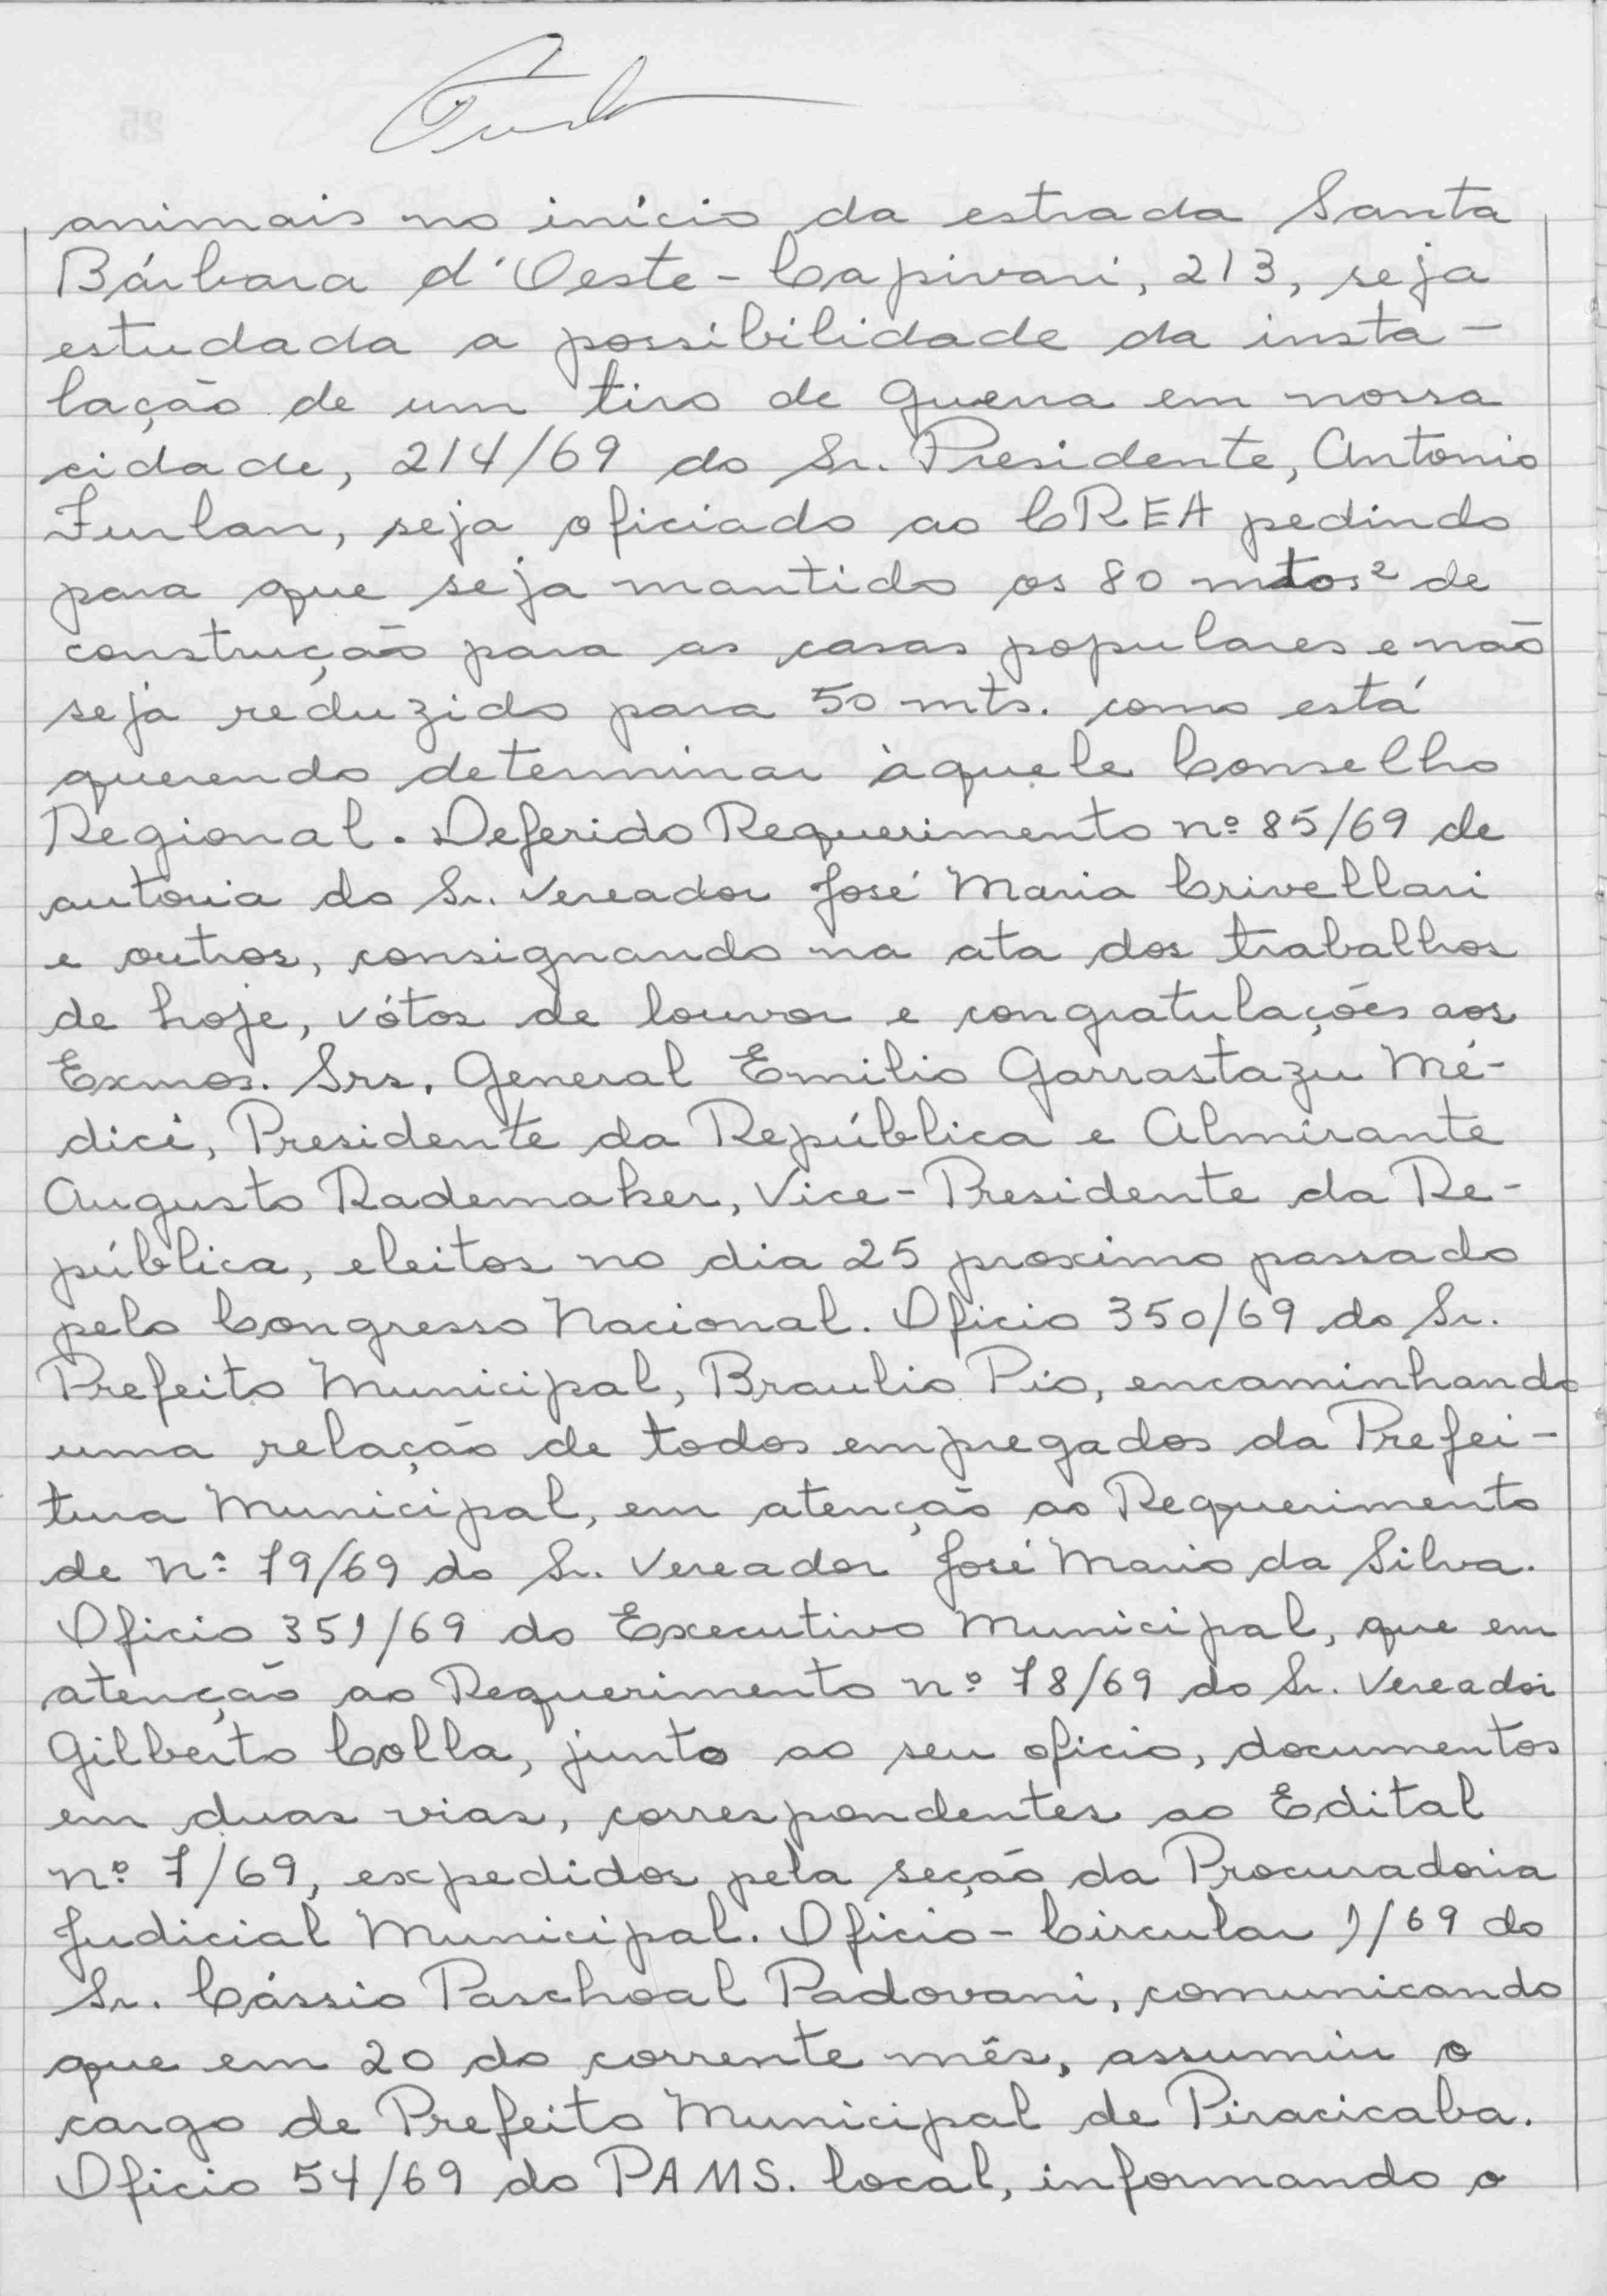 animais no início da estrada Santa
Bárbara d'Oeste - Capivari, 213, seja
estudada a possibilidade da insta-
lação de um tiro de guerra em nossa
cidade, 214/69 do Sr. Presidente, Antonio
Furlan, seja oficiado ao CREA pedindo
para que seja mantido os 80 mtos² de
construção para as casas populares e não
seja reduzido para 50 mts. como está
querendo determinar àquele Conselho
Regional. Deferido Requerimento nº 85/69 de
autoria do Sr. Vereador José Maria Crivellari
e outros, consignando na ata dos trabalhos
de hoje, vótos de louvor e congratulações aos
Exmos. Srs. General Emilio Garrastazu Mé-
dici, Presidente da República e Almirante
Augusto Rademaker, Vice-Presidente da Re-
pública, eleitos no dia 25 proximo passado
pelo Congresso Nacional. Oficio 350/69 do Sr.
Prefeito Municipal, Braulio Pio, encaminhando
uma relação de todos empregados da Prefei-
tura Municipal, em atenção ao Requerimento
de nº 79/69 do Sr. Vereador José Mario da Silva.
Oficio 351/69 do Executivo Municipal, que em
atenção ao Requerimento nº 78/69 do Sr. Vereador
Gilberto Colla, junto ao seu oficio, documentos
em duas vias, correspondentes ao Edital
nº 7/69, expedidos pela seção da Procuradoria
Judicial Municipal. Oficio-Circular 1/69 do
Sr. Cássio Paschoal Padovani, comunicando
que em 20 do corrente mês, assumiu o
cargo de Prefeito Municipal de Piracicaba.
Oficio 54/69 do PAMS. local, informando o